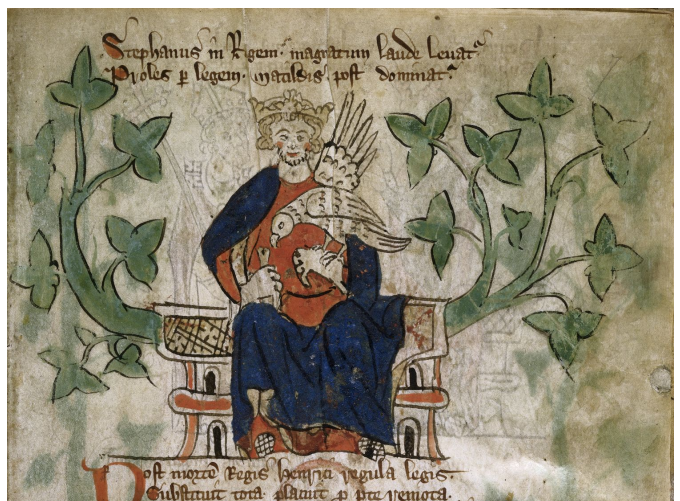 Stephanus in Regem· magnatum laude levatᵘʳ
Proles p legem· matildis post dominatᵘʳ
Post mortē Regis henrici regula legis·
Substituit tota placuit p pte remota·